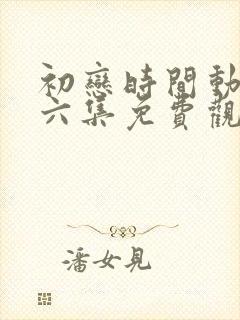 初戀時間動
六集免費觀
潘女見